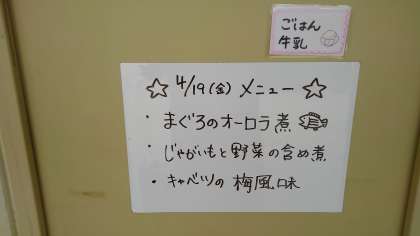 ごはん
牛乳
☆ 4/19(金) メニュー ☆
・まぐろのオーロラ煮
・じゃがいもと野菜の含め煮
・キャベツの梅風味